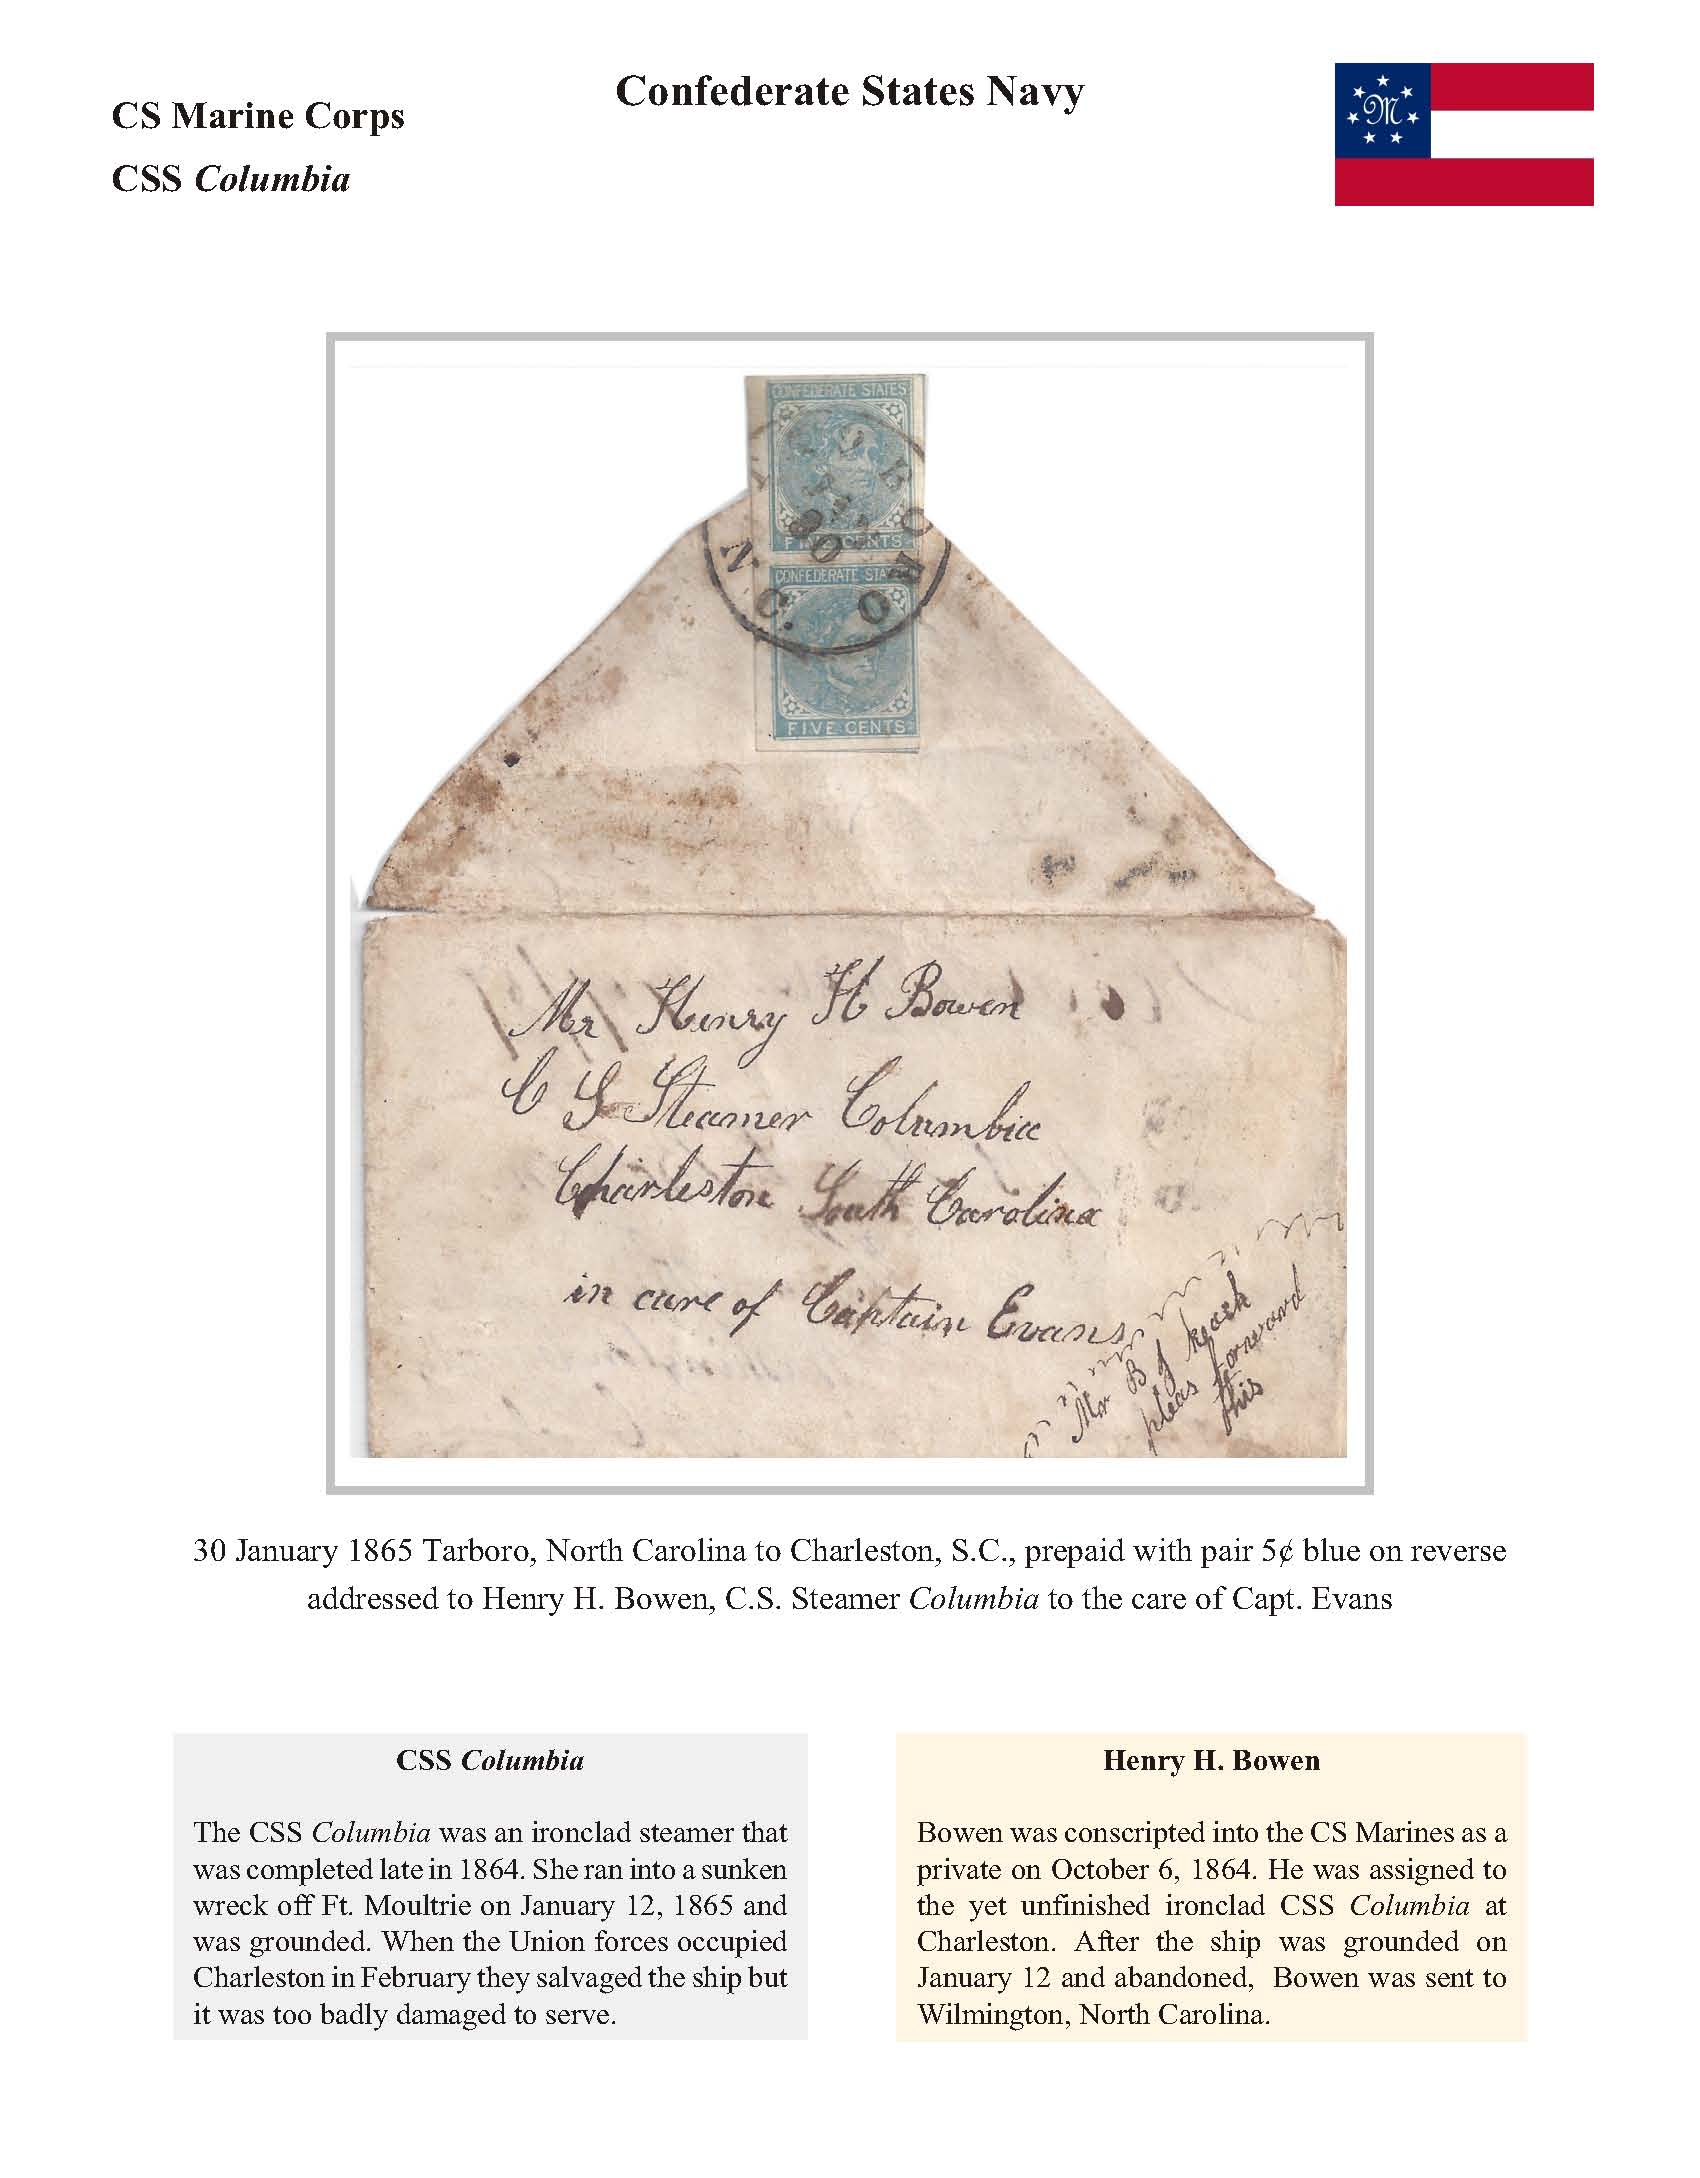 Confederate States Navy
CS Marine Corps
CSS Columbia
M
CONFEDERATE STATES
FIVE CENTS
CONFEDERATE STATES
FIVE CENTS
N. C.
30
Mr Henry H Bowen
C S Steamer Columbia
Charleston South Carolina
in care of Captain Evans
Mr B J
pleas forward
this
30 January 1865 Tarboro, North Carolina to Charleston, S.C., prepaid with pair 5¢ blue on reverse
addressed to Henry H. Bowen, C.S. Steamer Columbia to the care of Capt. Evans
CSS Columbia
The CSS Columbia was an ironclad steamer that
was completed late in 1864. She ran into a sunken
wreck off Ft. Moultrie on January 12, 1865 and
was grounded. When the Union forces occupied
Charleston in February they salvaged the ship but
it was too badly damaged to serve.
Henry H. Bowen
Bowen was conscripted into the CS Marines as a
private on October 6, 1864. He was assigned to
the yet unfinished ironclad CSS Columbia at
Charleston. After the ship was grounded on
January 12 and abandoned, Bowen was sent to
Wilmington, North Carolina.